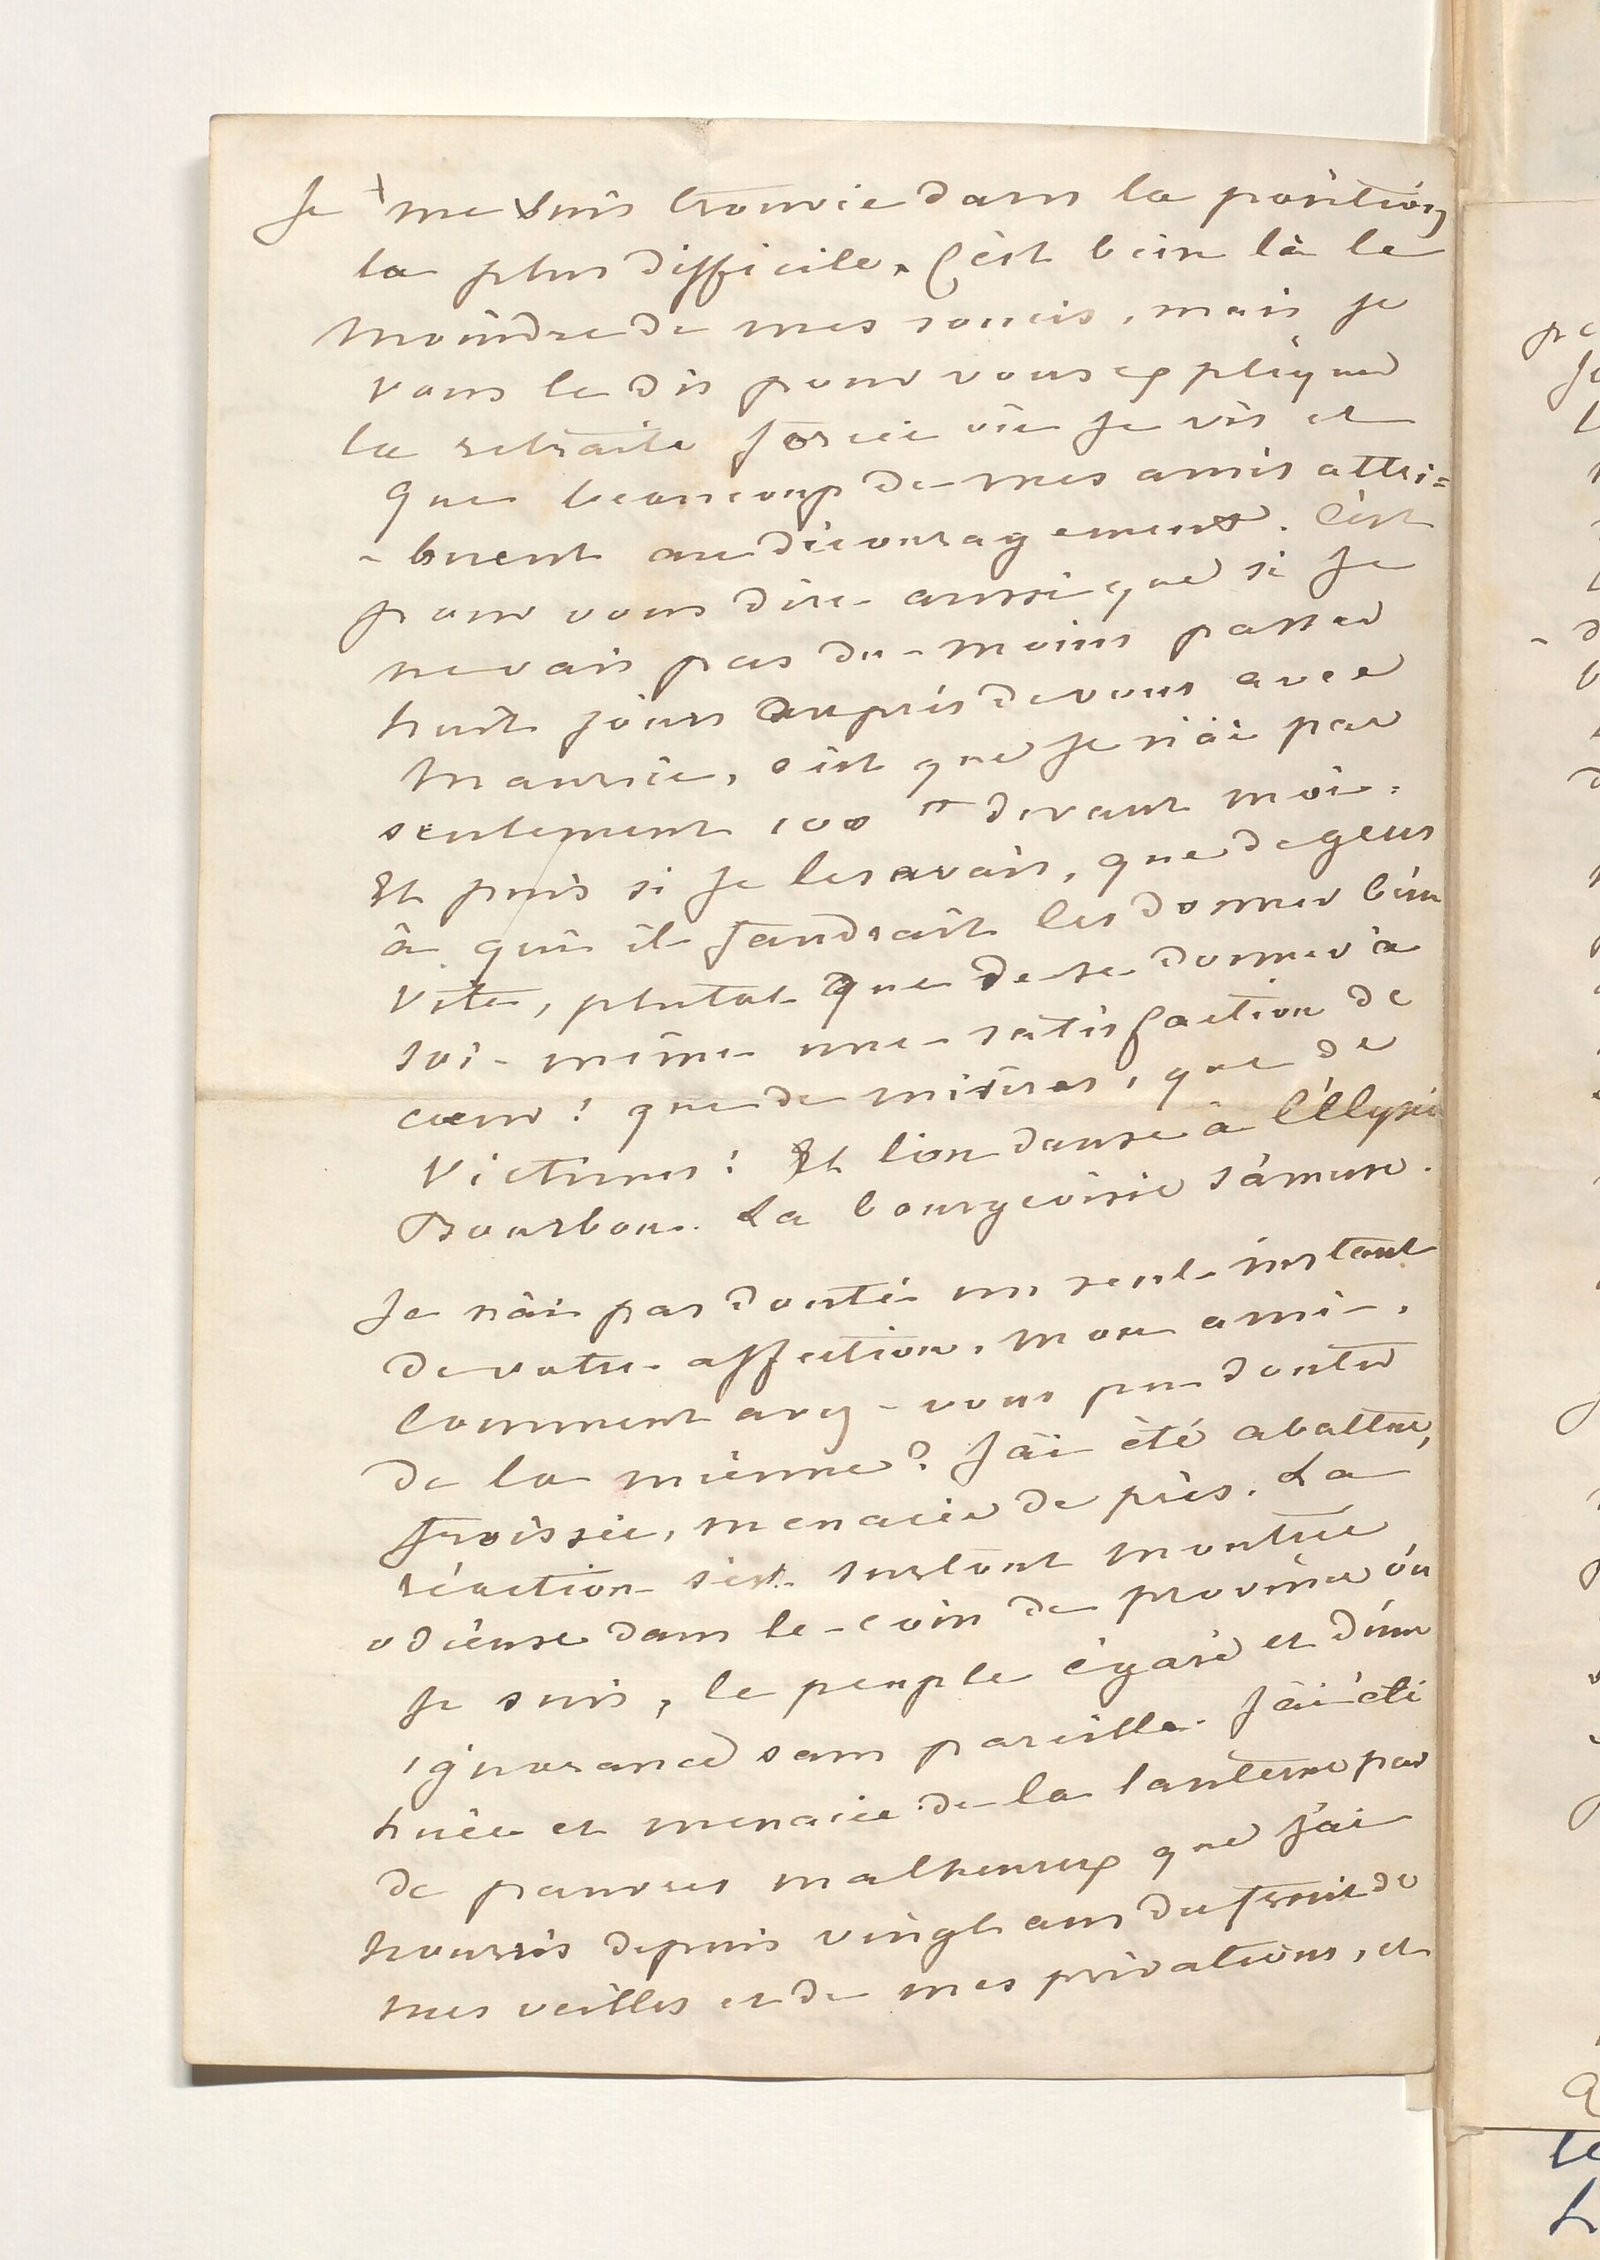 Je me suis trouvée dans la position
la plus difficile. C'est bien là le
moindre de mes soucis, mais je
vous le dis pour vous expliquer
la retraite forcée où je vis et
que beaucoup de mes amis attri=
-buent au découragement. C'est
pour vous dire aussi que si je
ne vais pas du moins passer
huit jours auprès de vous avec
Maurice, c'est que je n'ai pas
seulement 100 fr devant moi.
Et puis si je les avais, que de gens
à qui il faudrait les donner bien
vite, plutot que de se donner à
soi-même une satisfaction de
cœur! que de misères, que de
victimes! Et l'on danse à l'Elysée
Bourbon. La bourgeoisie s'amuse.
Je n'ai pas douté un seul instant
de votre affection, mon ami.
Comment avez-vous pu douter
de la mienne? J'ai été abattue,
froissée, menacée de près. La
réaction s'est surtout montrée
odieuse dans le coin de province où
je suis, le peuple égaré et d'une
ignorance sans pareille. J'ai été
huée et menacée de la lanterne par
de pauvres malheureux que j'ai
nourris depuis vingt ans du fruit de
mes veilles et de mes privations, et